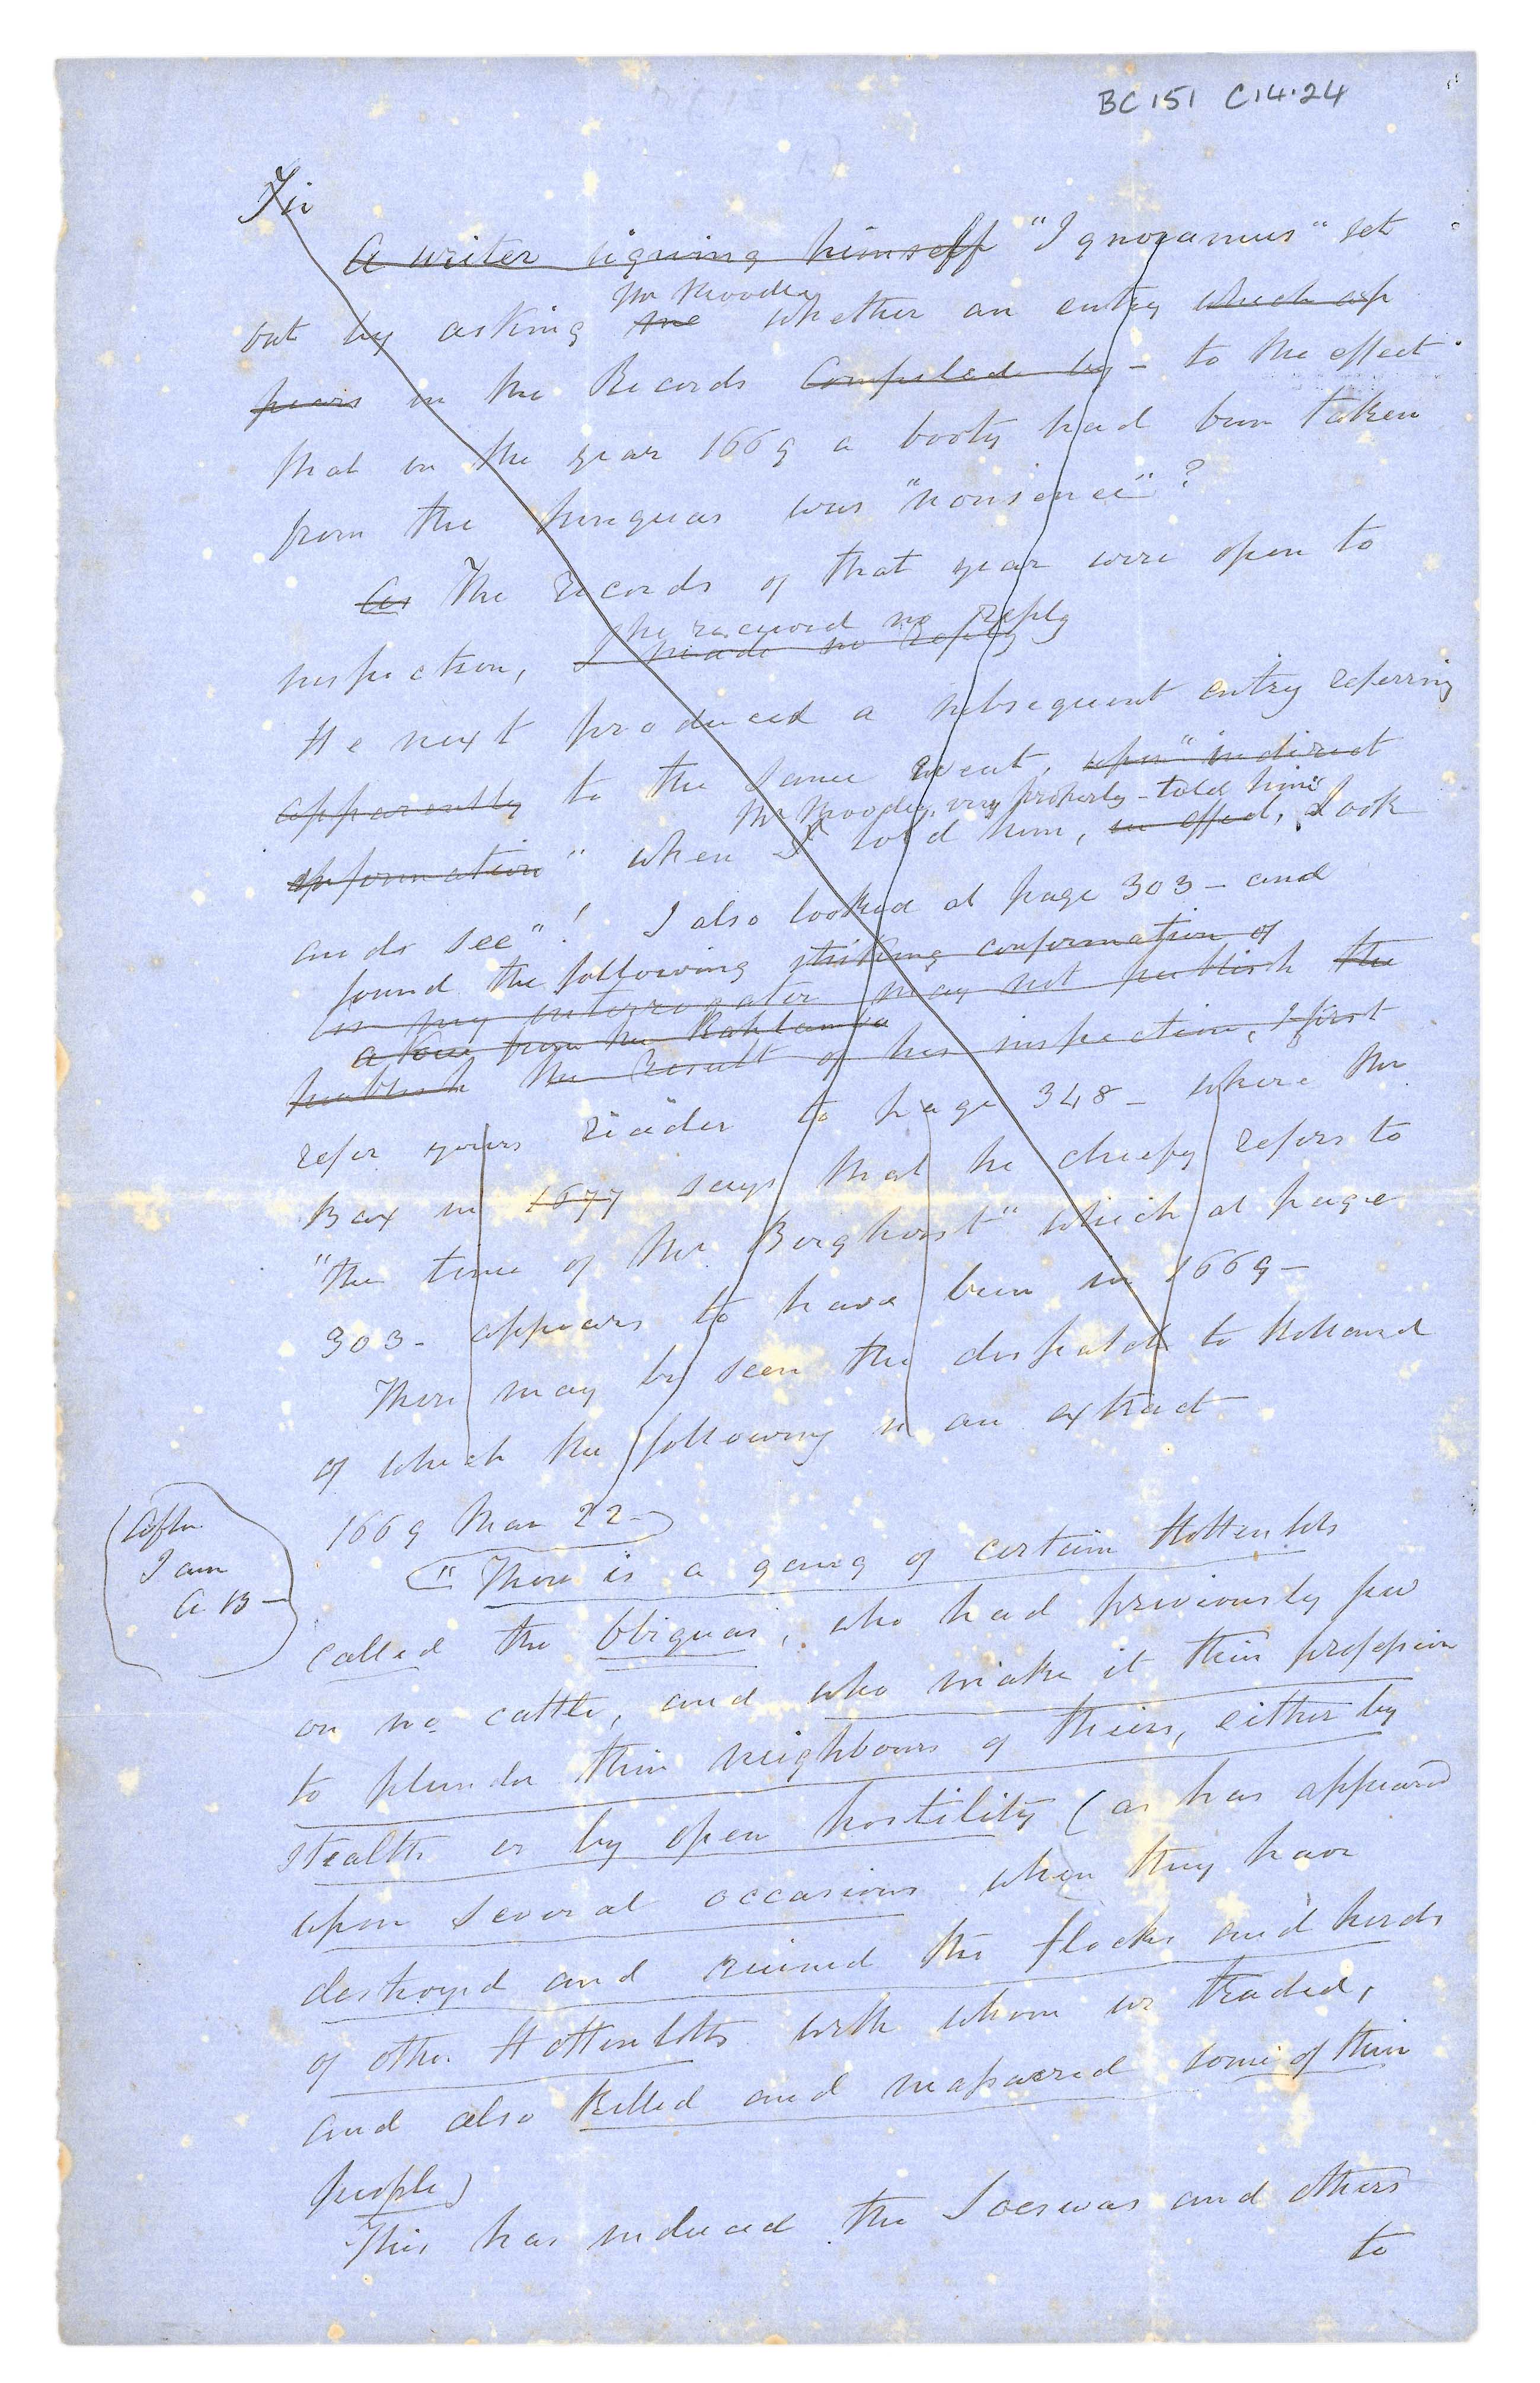 BC 151 C14.24
Sir
A writer signing himself "Ignoramus" set
Mr Moodie
out by asking me whether an entry which ap
pears in the Records Compiled by - to the effect
that in the year 1669 a booty had been taken
from the was "nonsence"?
As The records of that year were open to
he received no reply
inspection, I made no reply
He next produced a subsequent entry referring
apparently to the same event, upon "indirect
Mr Moodie, very properly - told him
information" when I told him, in effect, "Look
and see"! I also looked at page 303 - and
found the following striking confirmation of
my interrogator may not publish the
a from the
publish the result of his inspection, I first
refer yours reader to page 348 - where Mr
Bax in 1677 says that he chiefly refers to
"the time of Mr. Borghorst" which at page
303 - appears to have been in 1669 -
There may be seen the despatch to Holland
of which the following is an extract
1669 Mar 22 -
After
I am
A B -
"There is a gang of certain Hottentots
called the Obiquas, who had previously few
or no cattle, and who make it their profession
to plunder their neighbours of theirs, either by
stealth or by open hostility (as has appeared
upon several occasions when they have
destroyed and ruined the flocks and herds
of other Hottentots with whom we traded,
and also killed and massacred some of their
people)
This has induced the Soeswas and others
to